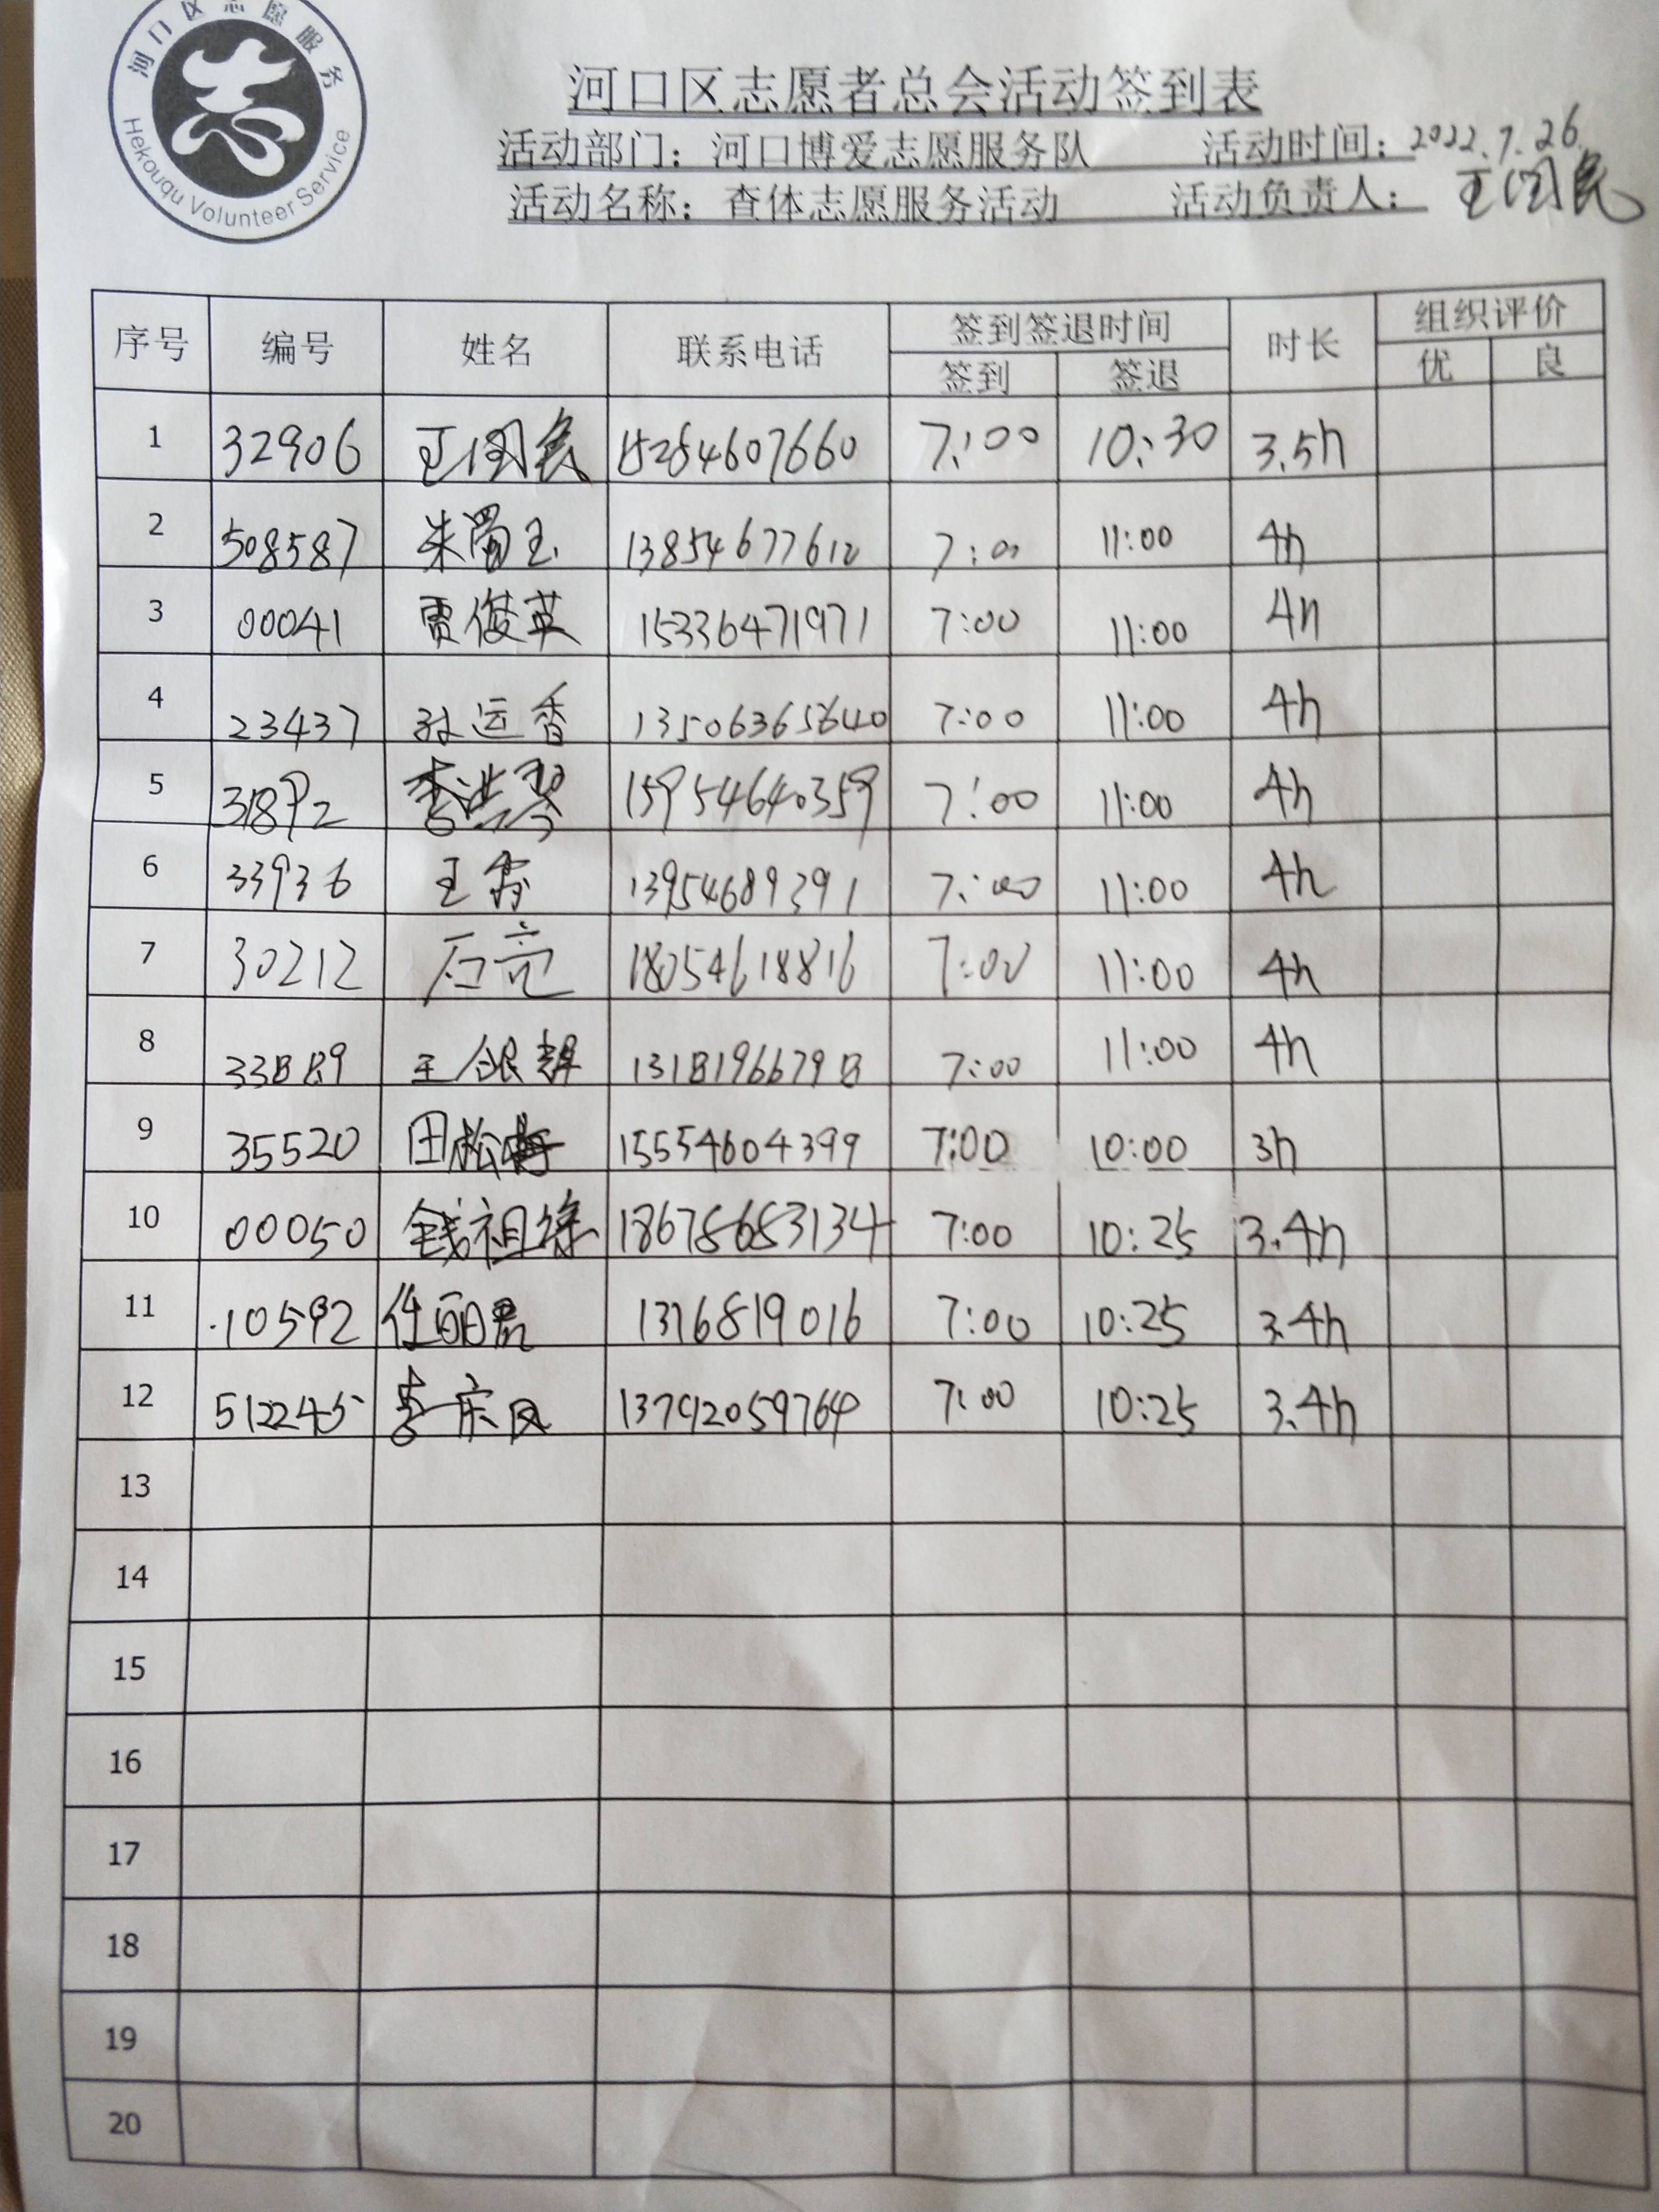 河口区志愿服务
Hekouqu Volunteer Service
河口区志愿者总会活动签到表
活动部门：河口博爱志愿服务队 活动时间：2022.7.26
活动名称：查体志愿服务活动 活动负责人：王国民
序号 编号 姓名 联系电话 签到签退时间 时长 组织评价
签到 签退 优 良
1 32906 王国民 15264607660 7:00 10:30 3.5h
2 508587 朱蜀玉 13854677610 7:00 11:00 4h
3 00041 贾俊英 15336471971 7:00 11:00 4h
4 23437 孙运香 13506365640 7:00 11:00 4h
5 31892 李洪琴 15954640359 7:00 11:00 4h
6 33936 王 13954689391 7:00 11:00 4h
7 30212 石亮 18054618816 7:00 11:00 4h
8 33889 王银辉 13181966798 7:00 11:00 4h
9 35520 田松 15554604399 7:00 10:00 3h
10 00050 钱祖 18678683134 7:00 10:25 3.4h
11 10592 任丽君 1376819016 7:00 10:25 3.4h
12 512245 李庆风 13792059764 7:00 10:25 3.4h
13
14
15
16
17
18
19
20